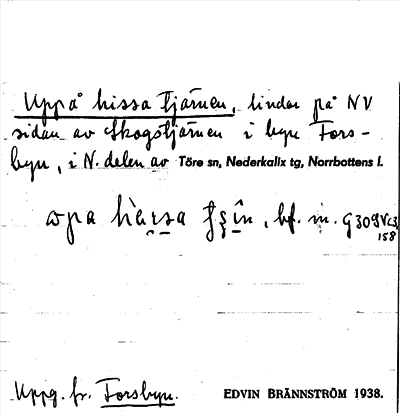 Uppå hissa tjärnen, lindor på NV
sidan av Skogstjärnen i byn Fors-
byn, i N. delen av Töre sn, Nederkalix tg, Norrbottens l.
bf. m.
158
Uppg. fr. Forsbyn. EDVIN BRÄNNSTRÖM 1938.